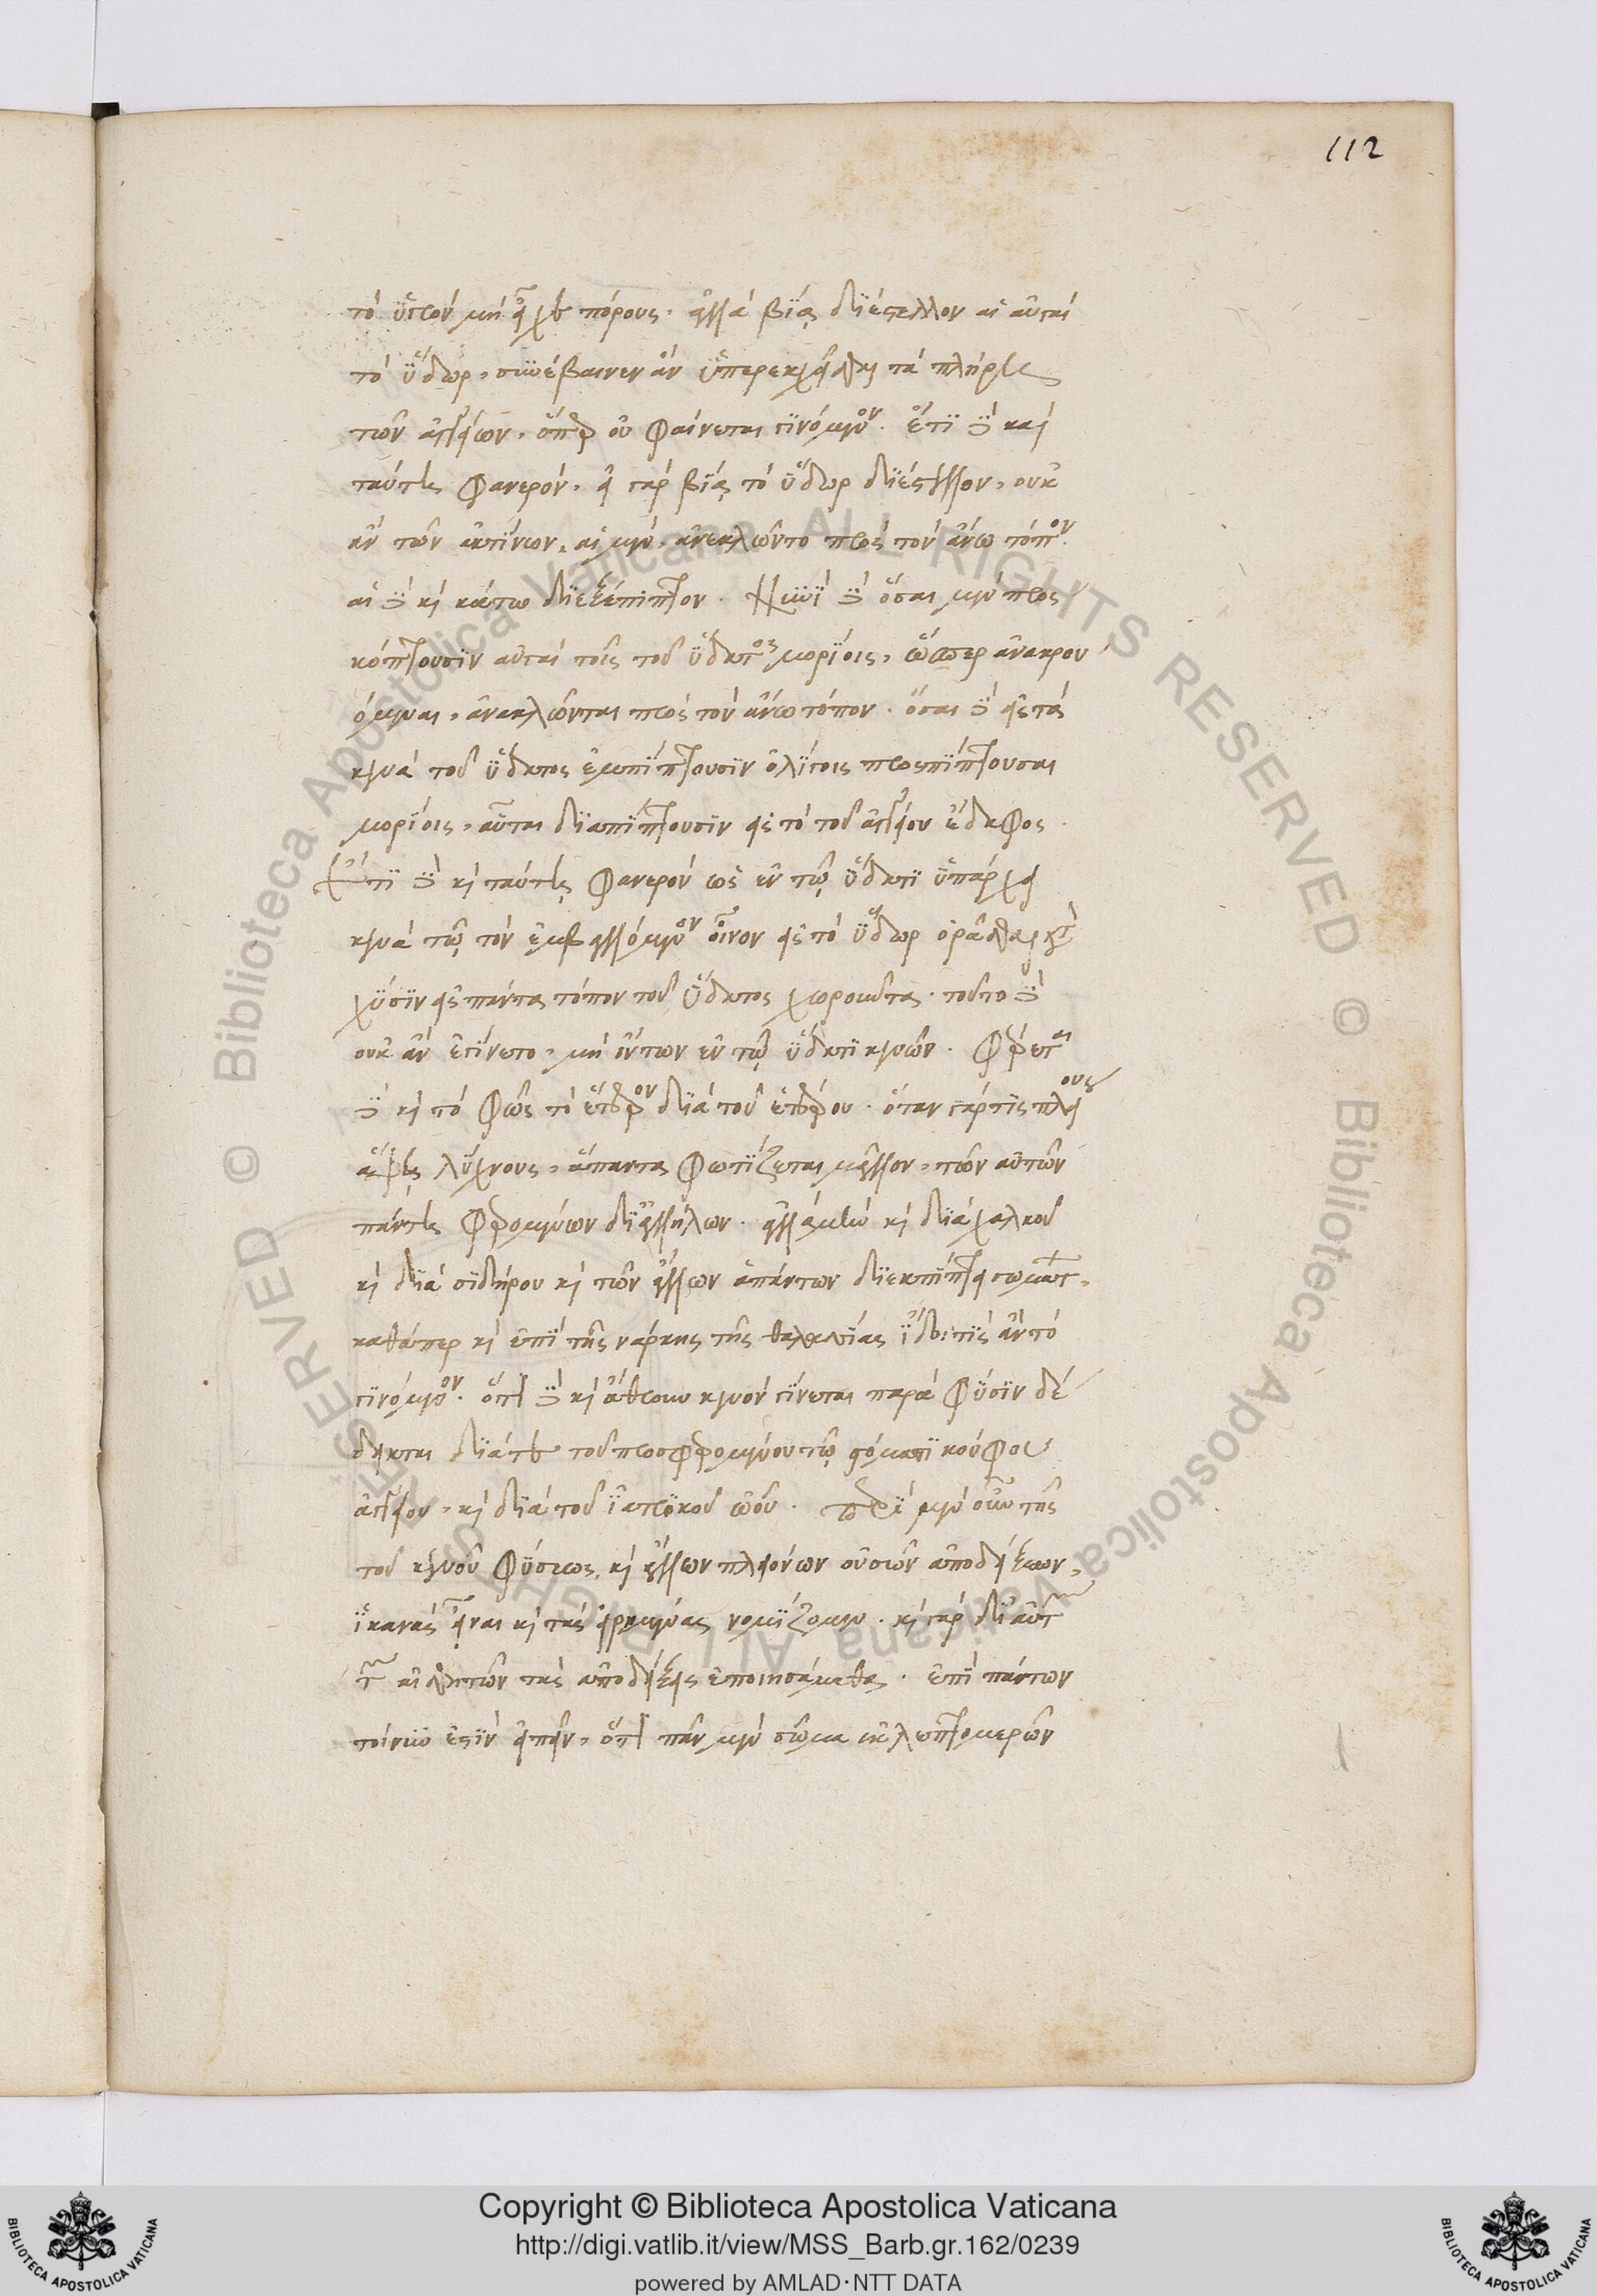 112
τὸ ὑγρὸν μὴ εἶχε πόρους· ἀλλὰ βίᾳ διέστελλον αἱ αὐγαὶ
τὸ ὕδωρ, συνέβαινεν ἂν ὑπερεκχεῖσθαι τὰ πλήρη
τῶν ἀγγείων, ὅπερ οὐ φαίνεται γινόμενον. ἔτι δὲ καὶ
ταύτῃ φανερόν, εἰ γὰρ βίᾳ τὸ ὕδωρ διέστελλον, οὐκ
ἂν τῶν ἀκτίνων, αἱ μὲν, ἀνεκλῶντο πρὸς τὸν ἄνω τόπον.
αἱ δὲ καὶ κάτω διεξέπιπτον. Νυνὶ δὲ ὅσαι μὲν προς
κόπτουσιν αὐγαὶ τοῖς τοῦ ὕδατος μορίοις, ὥσπερ ἀνακρου
όμεναι, ἀνακλῶνται πρὸς τὸν ἄνω τόπον. ὅσαι δὲ εἰς τὰ
κενὰ τοῦ ὕδατος ἐμπίπτουσιν ὀλίγοις προσπίπτουσαι
μορίοις, αὗται διαπίπτουσιν εἰς τὸ τοῦ ἀγγείου ἔδαφος.
Ἔτι δὲ καὶ ταύτῃ φανερὸν ὡς ἐν τῷ ὕδατι ὑπάρχει
κενὰ τῷ τὸν ἐμβαλλόμενον οἶνον εἰς τὸ ὕδωρ ὁρᾶσθαι κατὰ
χύσιν εἰς πάντα τόπον τοῦ ὕδατος χωροῦντα. τοῦτο δὲ
οὐκ ἂν ἐγίνετο, μὴ ὄντων ἐν τῷ ὕδατι κενῶν. φέρεται
δὲ καὶ τὸ φῶς τὸ ἕτερον διὰ τοῦ ἑτέρου. ὅταν γάρ τις πλείους
ἅψῃ λύχνους, ἅπαντα φωτίζεται μᾶλλον, τῶν αὐγῶν
πάντῃ φερομένων δι' ἀλλήλων. ἀλλὰ μὴν καὶ διὰ χαλκοῦ
καὶ διὰ σιδήρου καὶ τῶν ἄλλων ἁπάντων διεκπίπτει σωμάτων,
καθάπερ καὶ ἐπὶ τῆς νάρκης τῆς θαλασσίας ἴδοι τις ἂν τὸ
γινόμενον. ὅτι δὲ καὶ ἄθρουν κενὸν γίνεται παρὰ φύσιν δέ
δεικται διά τε τοῦ προσφερομένου τῷ στόματι κούφου
ἀγγείου, καὶ διὰ τοῦ ἰατρικοῦ ὠοῦ. Περὶ μὲν οὖν τῆς
τοῦ κενοῦ φύσεως, καὶ ἄλλων πλειόνων οὐσῶν ἀποδείξεων,
ἱκανὰς εἶναι καὶ τὰς εἰρημένας νομίζομεν. καὶ γὰρ δι' αὐτῶν
τῶν αἰσθητῶν τὰς ἀποδείξεις ἐποιησάμεθα. ἐπὶ πάντων
τοίνυν ἐστὶν εἰπεῖν, ὅτι πᾶν μὲν σῶμα ἐκ λεπτομερῶν
Copyright © Biblioteca Apostolica Vaticana
http://digi.vatlib.it/view/MSS_Barb.gr.162/0239
powered by AMLAD·NTT DATA